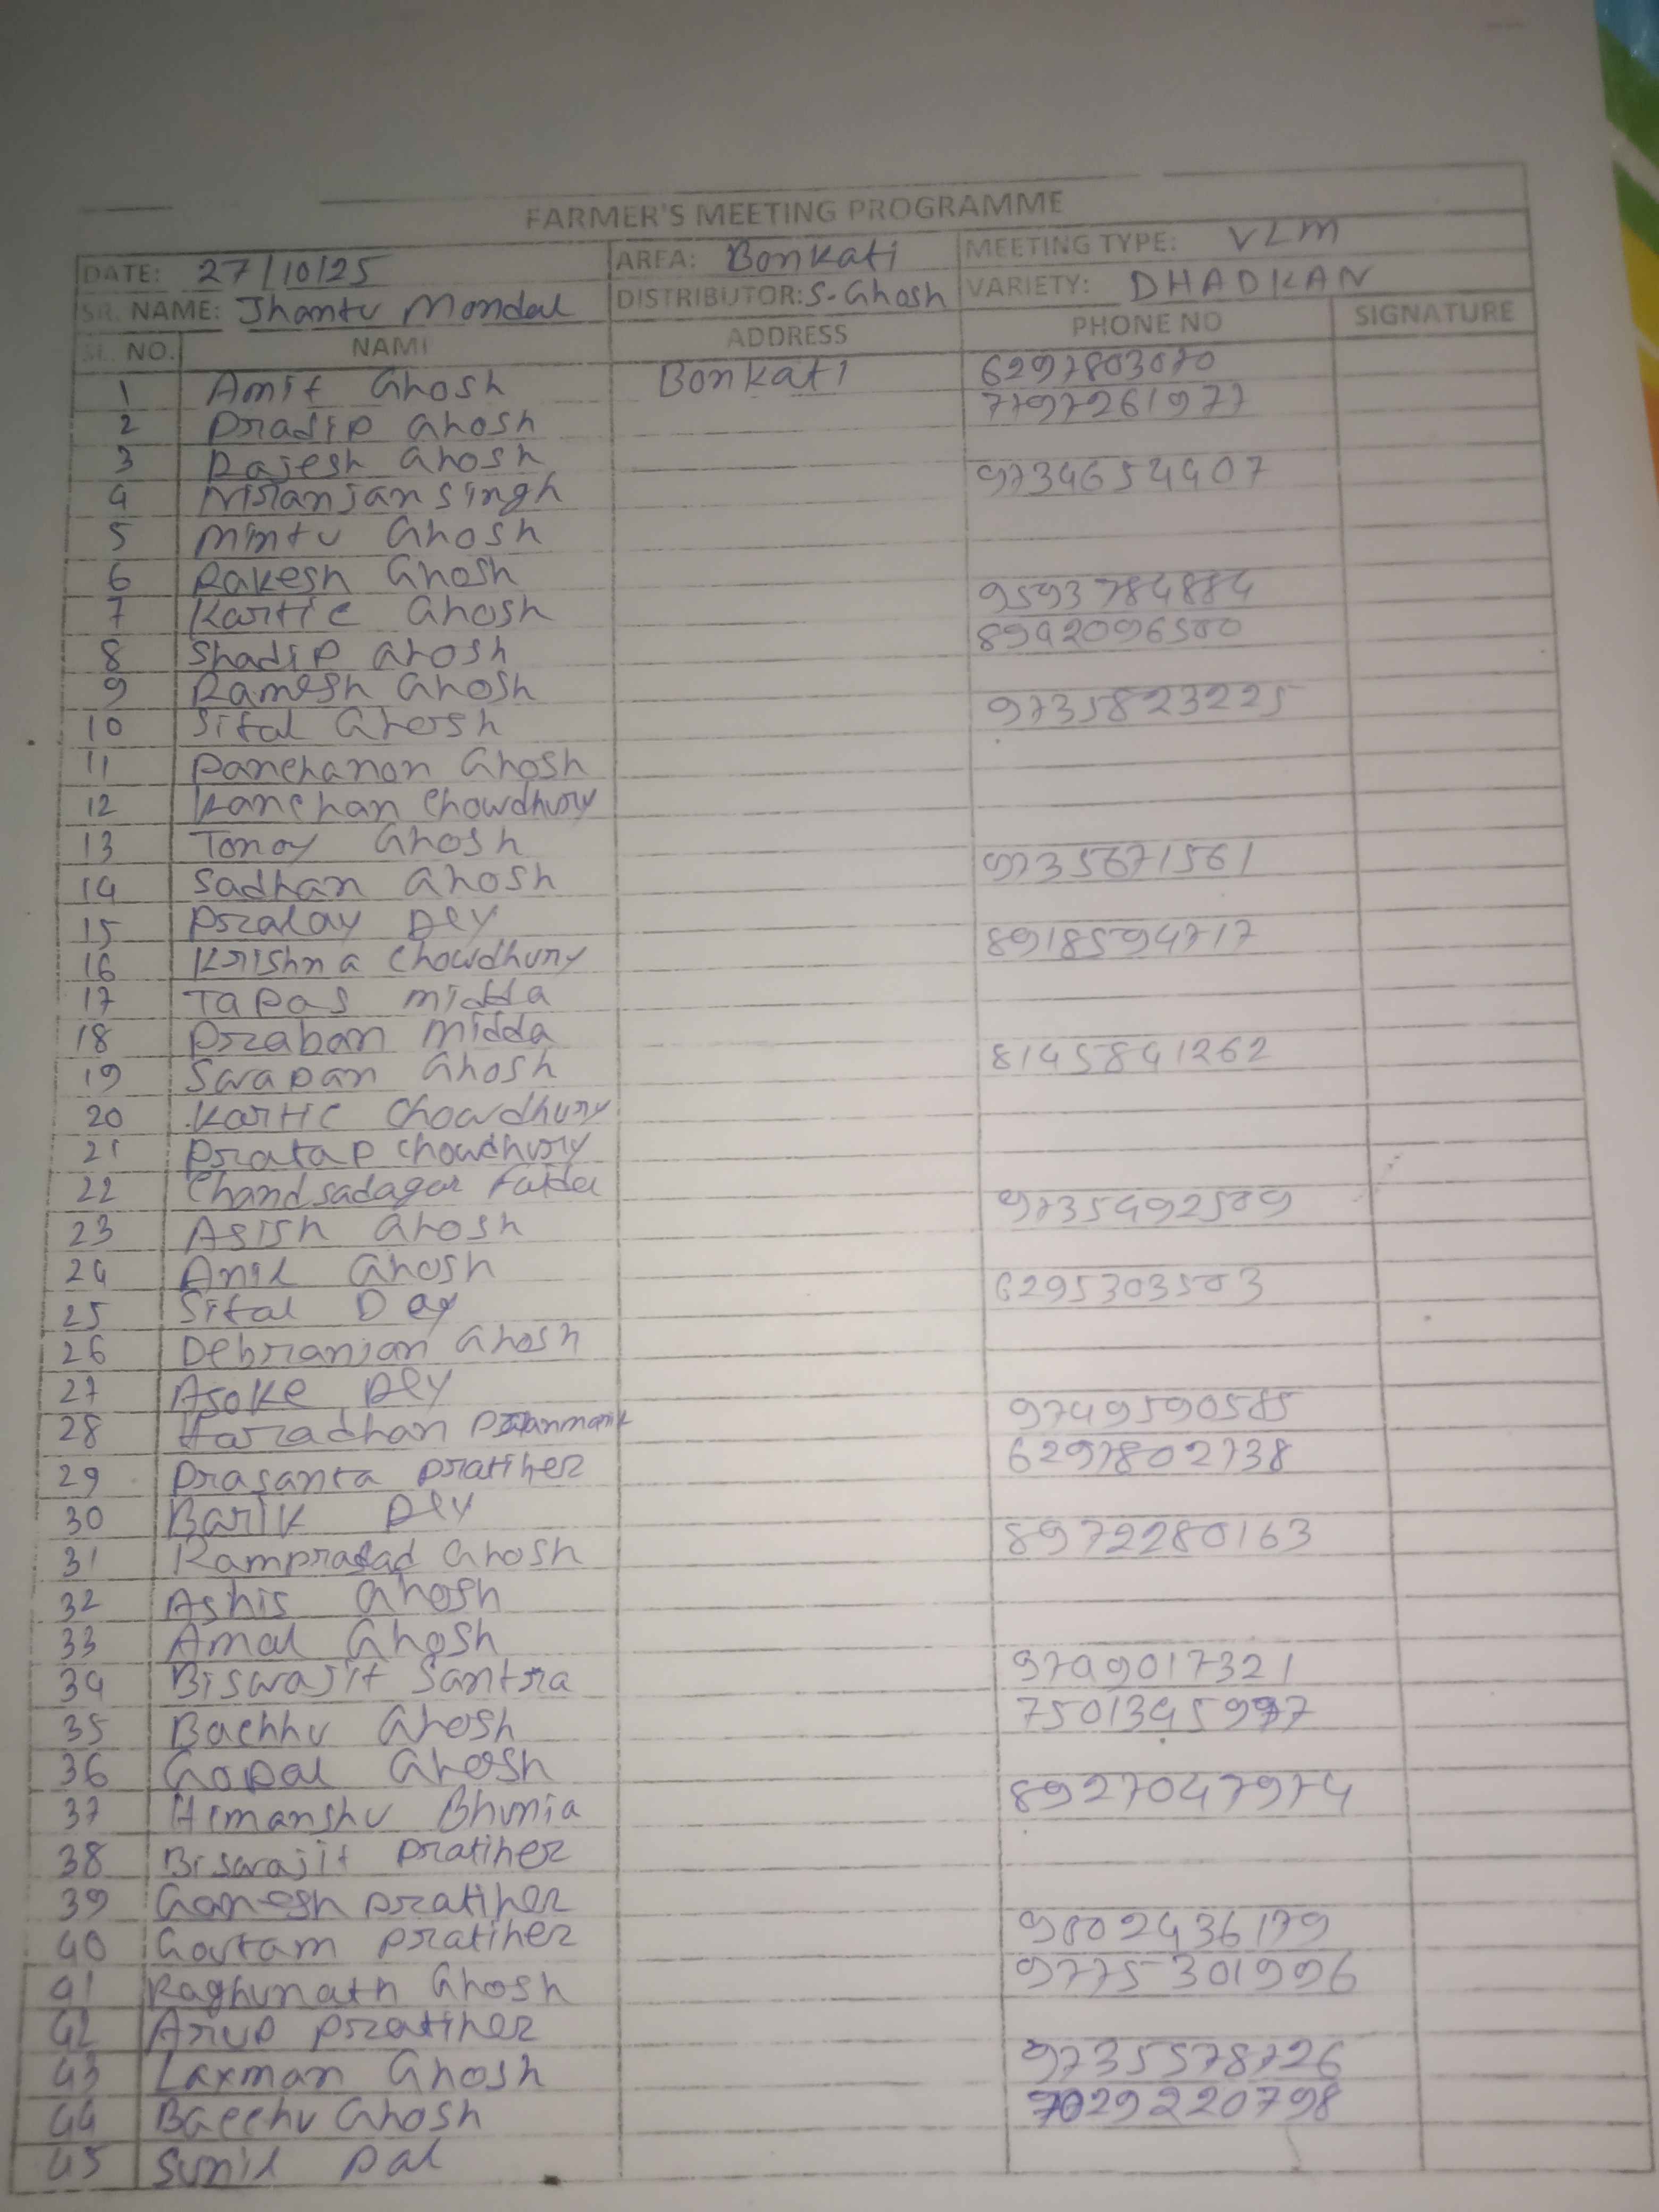 FARMER'S MEETING PROGRAMME
DATE: 27/10/25 AREA: Bonkati MEETING TYPE: VLM
SR. NAME: Jhantu Mondal DISTRIBUTOR: S. Ghosh VARIETY: DHADKAN
SL. NO. NAME ADDRESS PHONE NO SIGNATURE
1 Amit Ghosh Bonkati 6297803070
2 Pradip Ghosh 7797261977
3 Rajesh Ghosh
4 Niranjan Singh 9734654407
5 Mintu Ghosh
6 Rakesh Ghosh
7 Kartic Ghosh 9593784884
8 Shadip Ghosh 8942096500
9 Ramesh Ghosh
10 Sital Ghosh 9735823225
11 Panchanon Ghosh
12 Kanchan Chowdhury
13 Tonoy Ghosh
14 Sadhan Ghosh 9735671561
15 Pralay Dey
16 Krishna Chowdhury 8918594717
17 Tapas Midda
18 Praban Midda
19 Swapan Ghosh 8145841262
20 Kartic Chowdhury
21 Pratap Chowdhury
22 Chandsadagar
23 Asish Ghosh 9735492509
24 Anil Ghosh
25 Sital Dey 6295303503
26 Debranjan Ghosh
27 Asoke Dey
28 Haradhan 9749590585
29 Prasanta Pratiher 6297802738
30 Barik Dey
31 Ramprasad Ghosh 8972280163
32 Ashis Ghosh
33 Amal Ghosh
34 Biswajit Santra 9749017321
35 Bachhu Ghosh 7501345997
36 Gopal Ghosh
37 Himanshu Bhunia 8927047974
38 Biswajit Pratiher
39 Ganesh Pratiher
40 Goutam Pratiher 9802436179
41 Raghunath Ghosh 9775301996
42 Arup Pratiher
43 Laxman Ghosh 9735578726
44 Bacchu Ghosh 7029220798
45 Sunil Pal